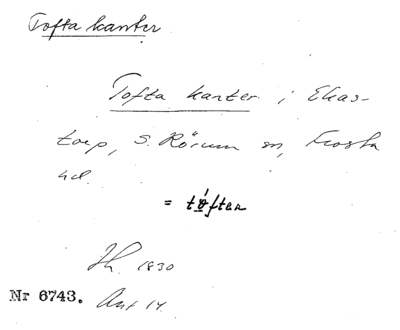 Tofta kanter
Tofta kanter i Ekas-
torp, S. Rörum sn, Frosta
hd.
= tóften
Jh. 1830
Nr 6743. Ant 14.